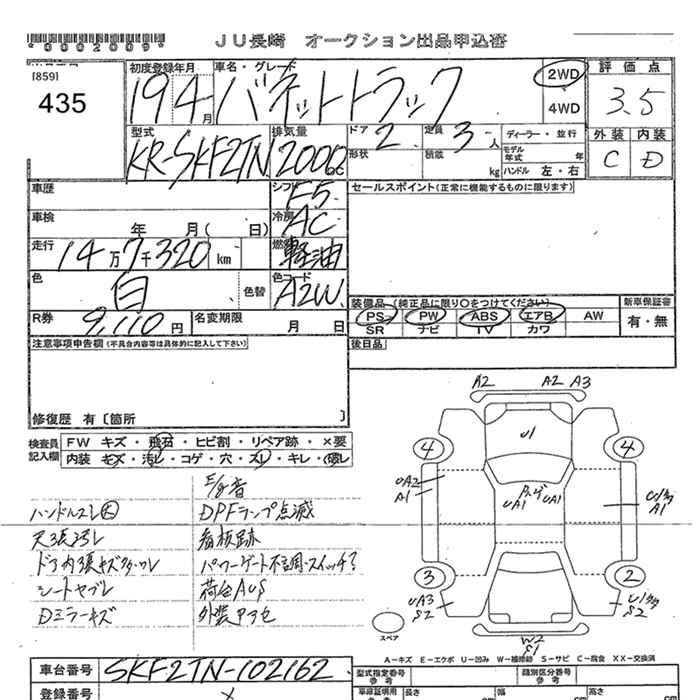 *0002009*
JU長崎 オークション出品申込書
[859]
435
初度登録年月 19 4月
車名・グレード バネットトラック
2WD
4WD
評価点 3.5
外装 内装
C D
型式 KR-SKF2TN
排気量 2000cc
ドア 2
形状
定員 3人
積載 kg
ディーラー・並行
モデル年式 年
ハンドル 左・右
車歴
シフト F5
セールスポイント(正常に機能するものに限ります)
車検 年 月( 日)
冷房 AC
走行 14万7千320km
燃料 軽油
色 白 色替
色コード A2W
装備品(純正品に限り○をつけてください)
新車保証書
PS PW ABS エアB AW
有・無
SR ナビ TV カワ
R券 9,110円
名変期限 月 日
後日品
注意事項申告欄(不具合内容等は具体的に記入して下さい)
修復歴 有〔箇所 〕
検査員記入欄
FW キズ・飛石・ヒビ割・リペア跡・×要
内装 キズ・汚レ・コゲ・穴・スレ・キレ・破レ
E/g音
ハンドルスレ
DPFランプ点滅
天張汚レ
看板跡
パワーゲート不調・スイッチ?
荷台AUS
Dミラーキズ
A2 A2 A3
U1
4 4
UA2
A1
UA1 UA1
A1
3 2
UA3
S2
S2
W2
S1
スペア
A-キズ E-エクボ U-凹み W-補修跡 S-サビ C-腐食 XX-交換済
車台番号 SKF2TN-102162
型式指定番号
参考
類別区分番号
参考
登録番号
長さ 幅 高さ